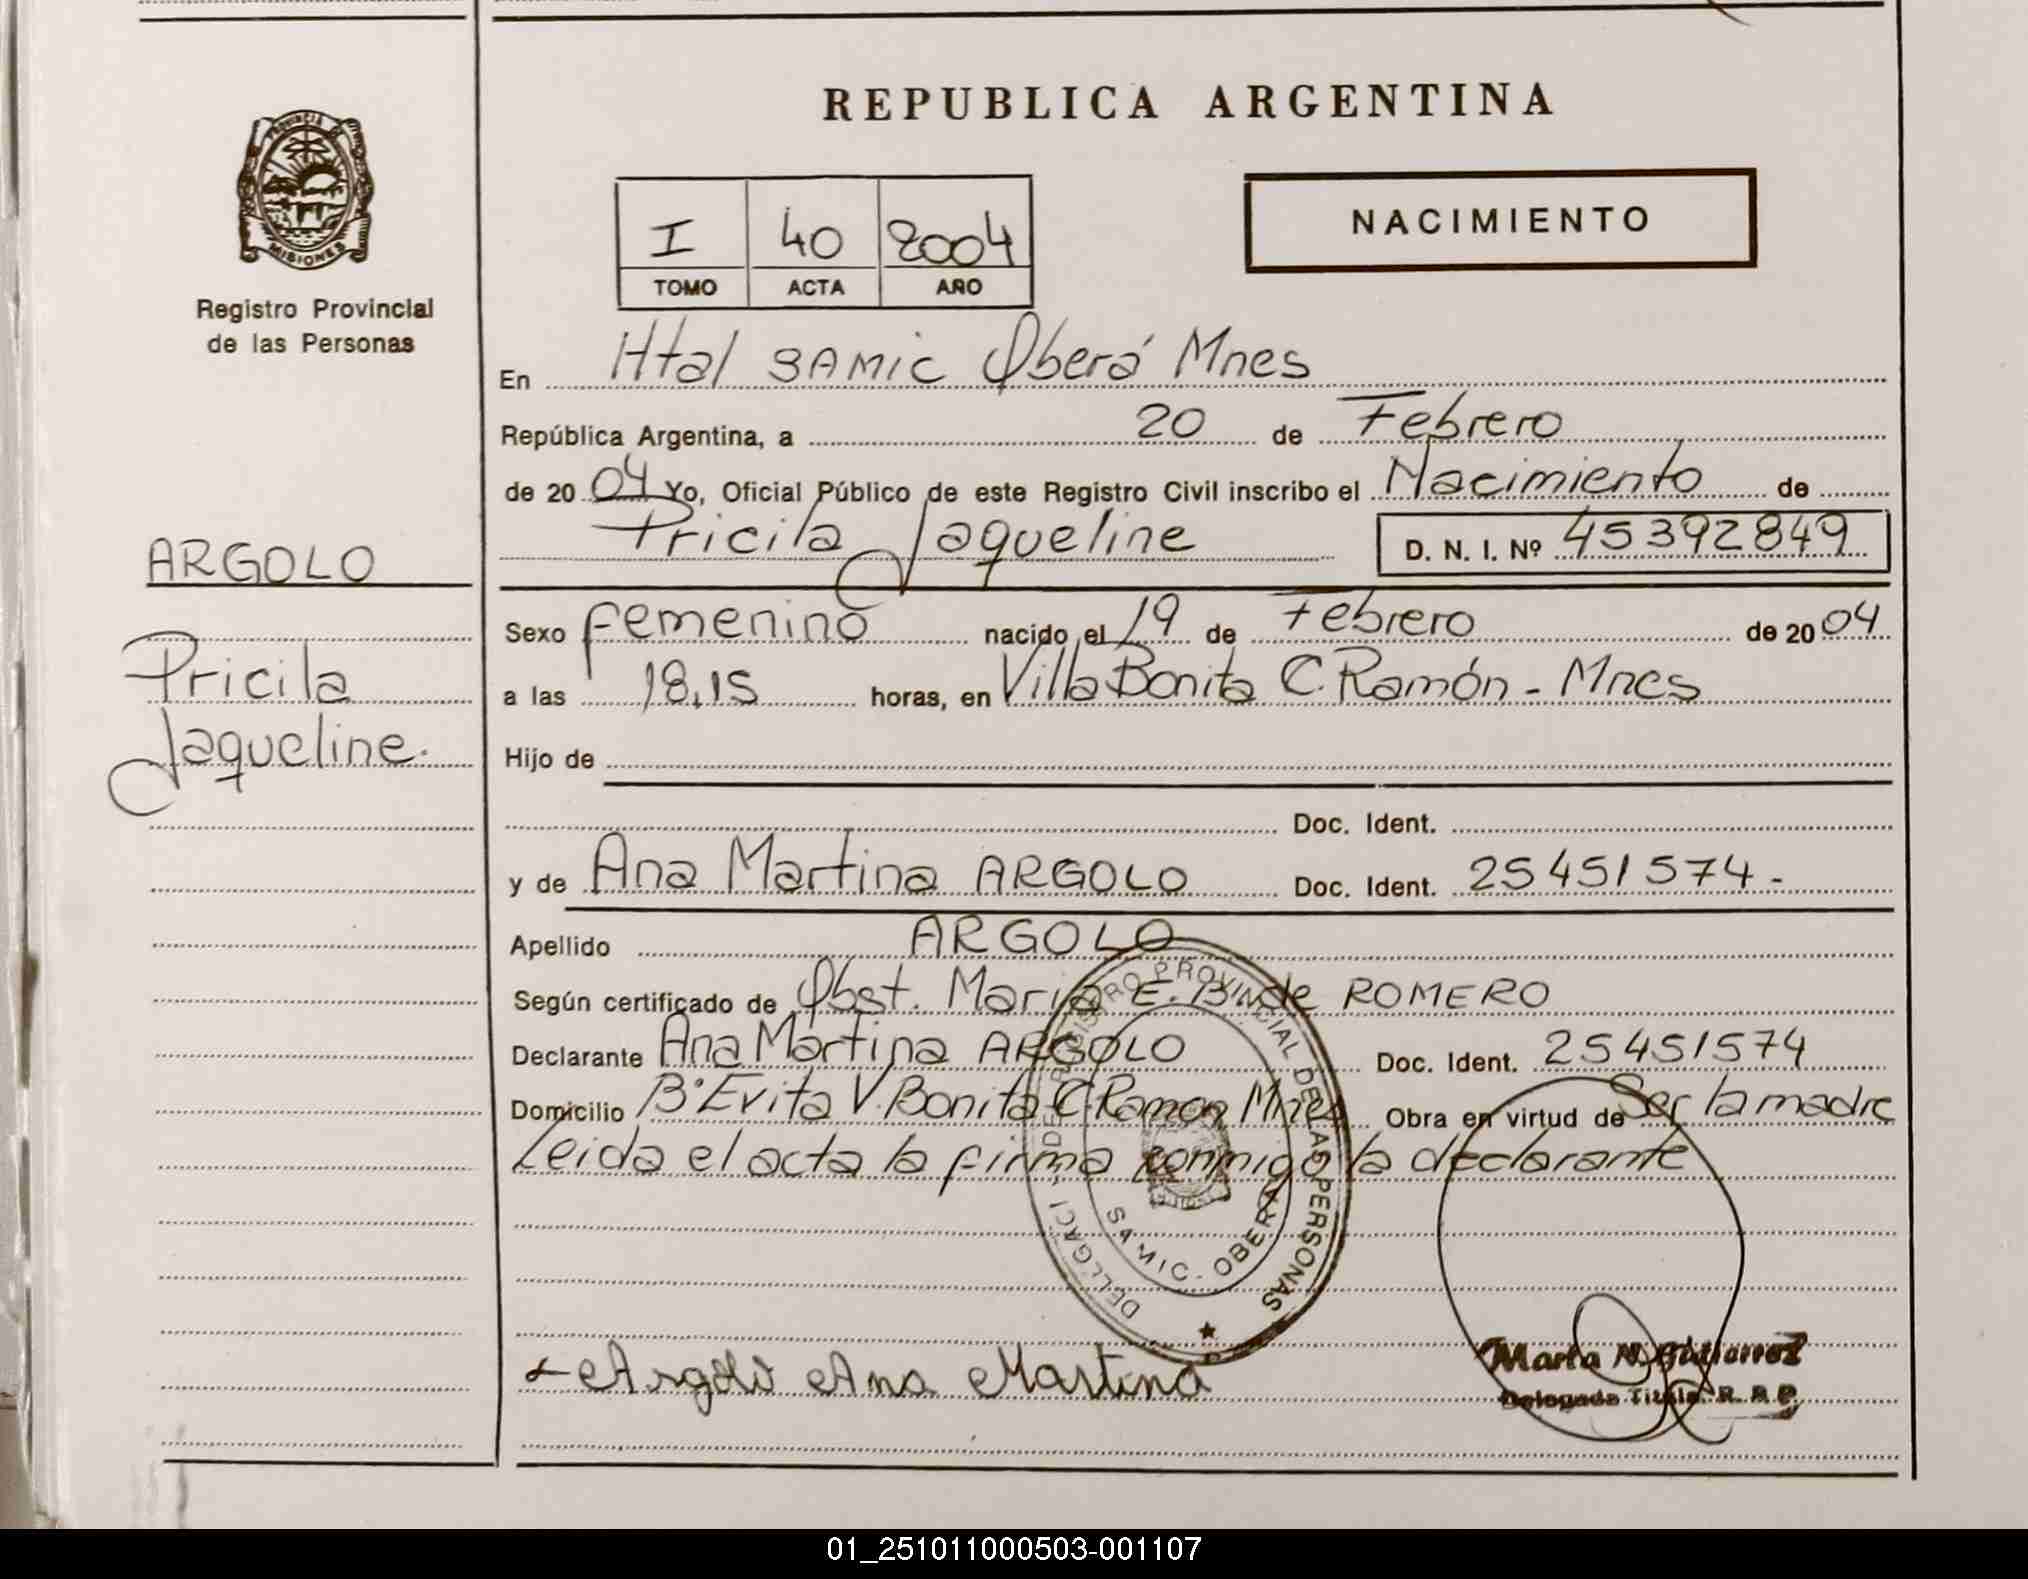 REPUBLICA ARGENTINA
PROVINCIA DE
MISIONES
Registro Provincial
de las Personas
I 40 2004
TOMO ACTA AÑO
NACIMIENTO
En Htal SAMIC Oberá Mnes
República Argentina, a 20 de Febrero
de 2004 Yo, Oficial Público de este Registro Civil inscribo el Nacimiento de
Pricila Jaqueline D. N. I. Nº 45392849
ARGOLO
Pricila
Jaqueline.
Sexo femenino nacido el 19 de Febrero de 2004
a las 18,15 horas, en Villa Bonita C. Ramón - Mnes
Hijo de
Doc. Ident.
y de Ana Martina ARGOLO Doc. Ident. 25451574-
Apellido ARGOLO
Según certificado de Obst. Maria E. B. de ROMERO
Declarante Ana Martina ARGOLO Doc. Ident. 25451574
Domicilio Bº Evita V. Bonita C. Ramon Mnes Obra en virtud de Ser la madre
Leida el acta la firma conmigo la declarante
REGISTRO PROVINCIAL DE LAS PERSONAS
SAMIC - OBERA
Argolo Ana Martina
Marta N. Gutierrez
Delegada Titular R. P. P.
01_251011000503-001107